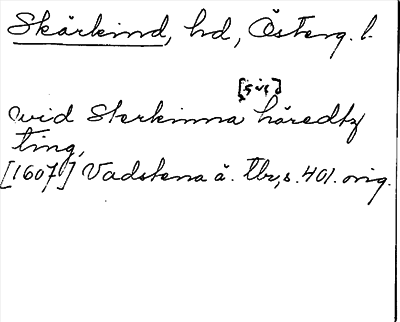 Skärkind, hd, Österg. l.
[sic]
vid Skerkinna häredtz
ting,
[1607] Vadstena ä. Tb, s. 401. orig.